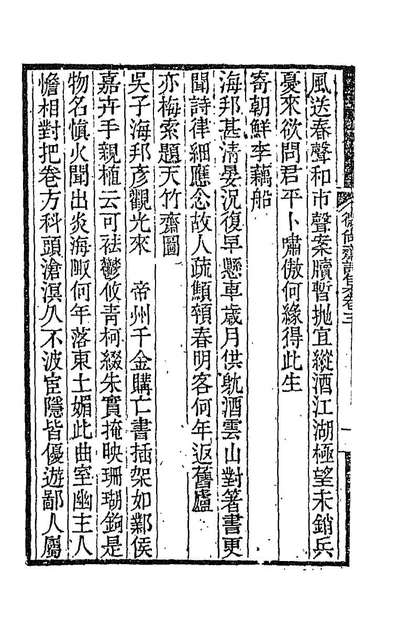 風送春聲和市聲案牘暫拋宜縱酒江湖極望未銷兵
憂來欲問君平卜嘯傲何緣得此生
寄朝鮮李藕船
海邦甚清晏況復早懸車歲月供觥酒雲山對著書更
聞詩律細應念故人疏顦顇春明客何年返舊廬
亦梅索題天竹齋圖
吳子海邦彥觀光來 帝州千金購亡書插架如鄴侯
嘉卉手親植云可祛鬱攸青柯綴朱實掩映珊瑚鉤是
物名愼火聞出炎海陬何年落東土媚此曲室幽主人
憺相對把卷方科頭滄溟久不波宦隱皆優遊鄙人屬